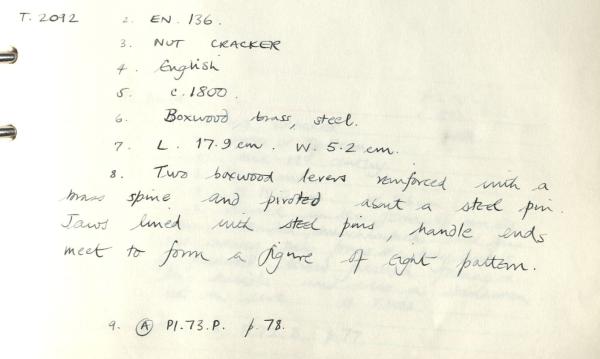 T. 2092 2. EN. 136.
3. NUT CRACKER
4. English
5. c. 1800.
6. Boxwood, brass, steel.
7. L. 17.9 cm. W. 5.2 cm.
8. Two boxwood levers reinforced with a
brass spine and pivoted about a steel pin.
Jaws lined with steel pins, handle ends
meet to form a figure of eight pattern.
9. A Pl. 73. P. p. 78.